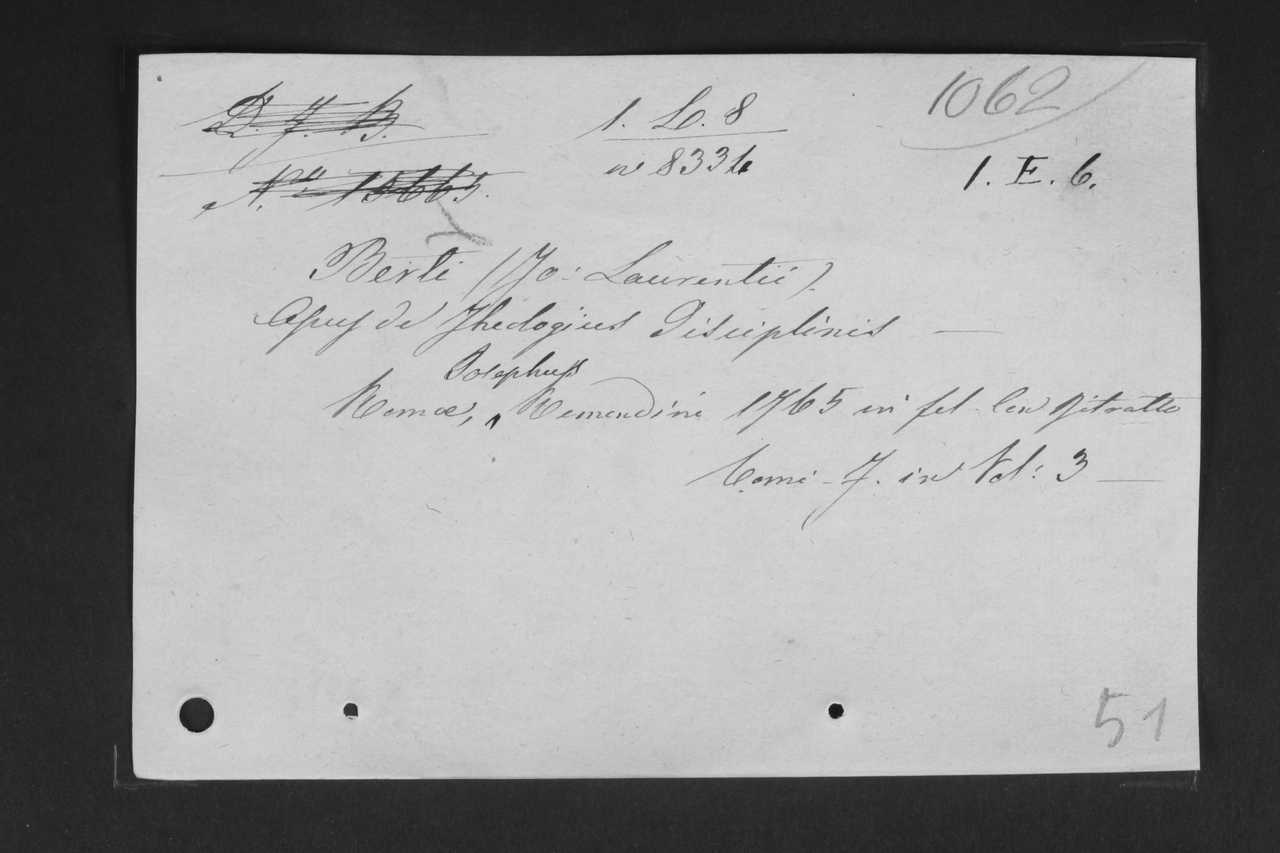 D. J. B.
1. L. 8
1062
N.º 15665.
n 8334
1. E. 6.
Berti (Jo: Laurentii).
Opus de Theologicis Disciplinis —
Josephus
Romae, Remondini 1765 in fol. con Ritratto
Tomi 7. in Vol: 3 —
51